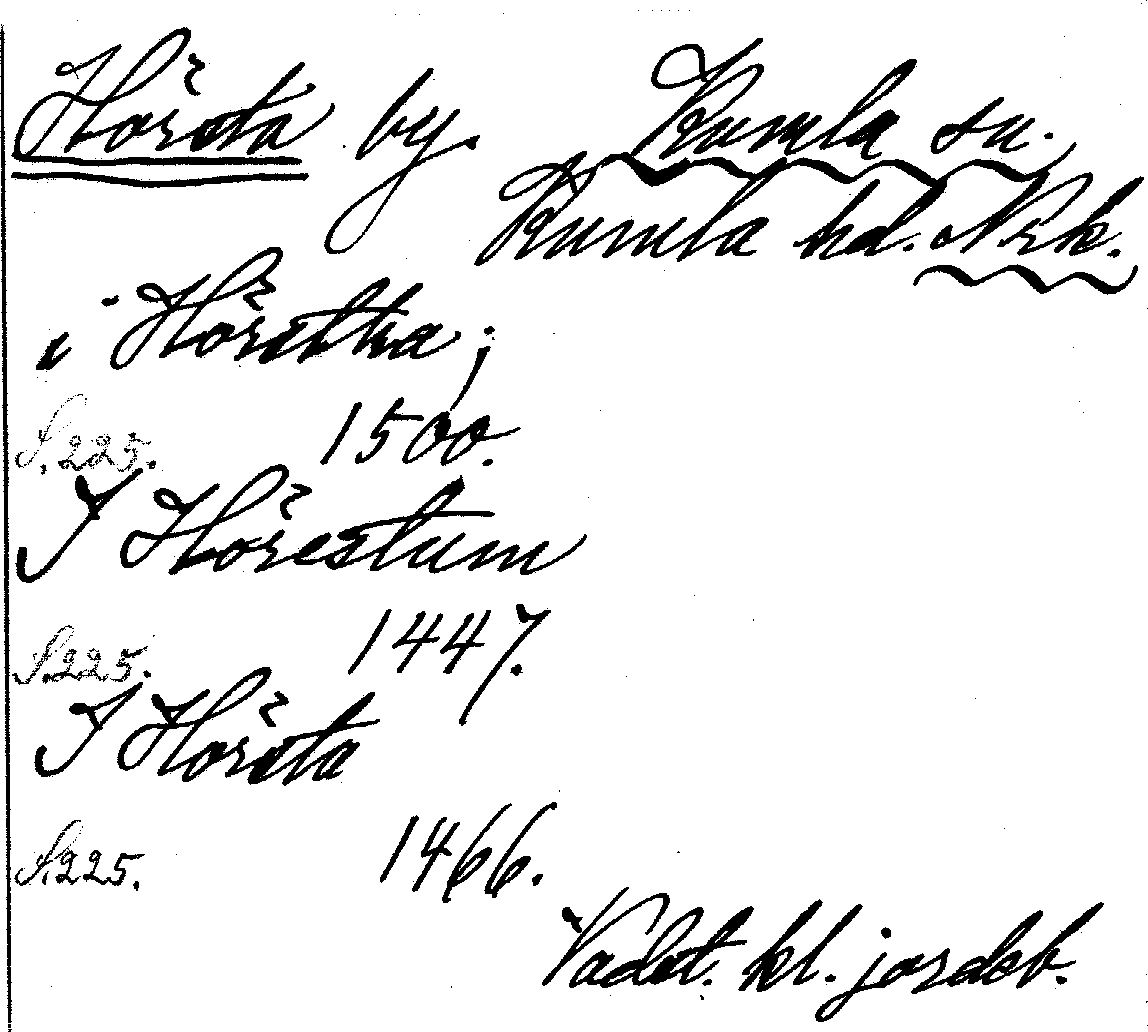 Hörsta by. Kumla sn.
Kumla hd. Nrk.
i Hörsttha;
S. 225. 1500.
I Hörestum
S. 225. 1447.
I Hörsta
S. 225. 1466.
Vadst. kl. jordeb.